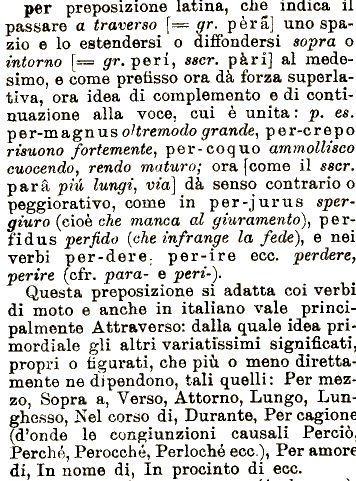 per preposizione latina, che indica il
passare a traverso [= gr. pèrâ] uno spa-
zio e lo estendersi o diffondersi sopra o
intorno [= gr. perí, sscr. pàri] al mede-
simo, e come prefisso ora dà forza superla-
tiva, ora idea di complemento e di conti-
nuazione alla voce, cui è unita: p. es.
per-magnus oltremodo grande, per-crepo
risuono fortemente, per-coquo ammollisco
cuocendo, rendo maturo; ora [come il sscr.
parâ piú lungi, via] dà senso contrario o
peggiorativo, come in per-jurus sper-
giuro (cioè che manca al giuramento), per-
fidus perfido (che infrange la fede), e nei
verbi per-dere, per-ire ecc. perdere,
perire (cfr. para- e peri-).
Questa preposizione si adatta coi verbi
di moto e anche in italiano vale princi-
palmente Attraverso: dalla quale idea pri-
mordiale gli altri variatissimi significati,
propri o figurati, che più o meno diretta-
mente ne dipendono, tali quelli: Per mez-
zo, Sopra a, Verso, Attorno, Lungo, Lun-
ghesso, Nel corso di, Durante, Per cagione
(d'onde le congiunzioni causali Perciò,
Perché, Perocché, Perloché ecc.), Per amore
di, In nome di, In procinto di ecc.